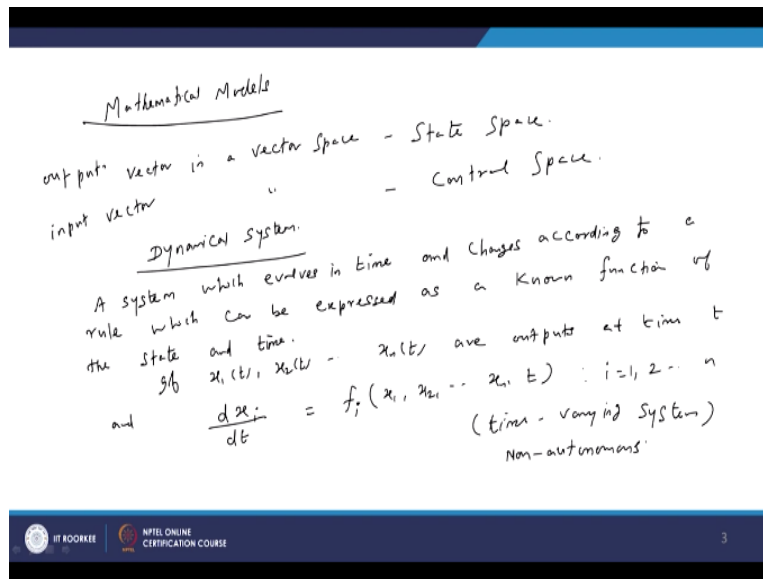 Mathematical Models
output vector in a vector space - State Space.
input vector " - Control Space.
Dynamical System.
A system which evolves in time and changes according to a
rule which can be expressed as a known function of
the state and time.
If x₁(t), x₂(t) -- xₙ(t) are outputs at time t
and dxᵢ/dt = fᵢ(x₁, x₂, -- xₙ, t) : i=1, 2 -- n
(time-varying system)
Non-autonomous.
IIT ROORKEE
NPTEL ONLINE
CERTIFICATION COURSE
3